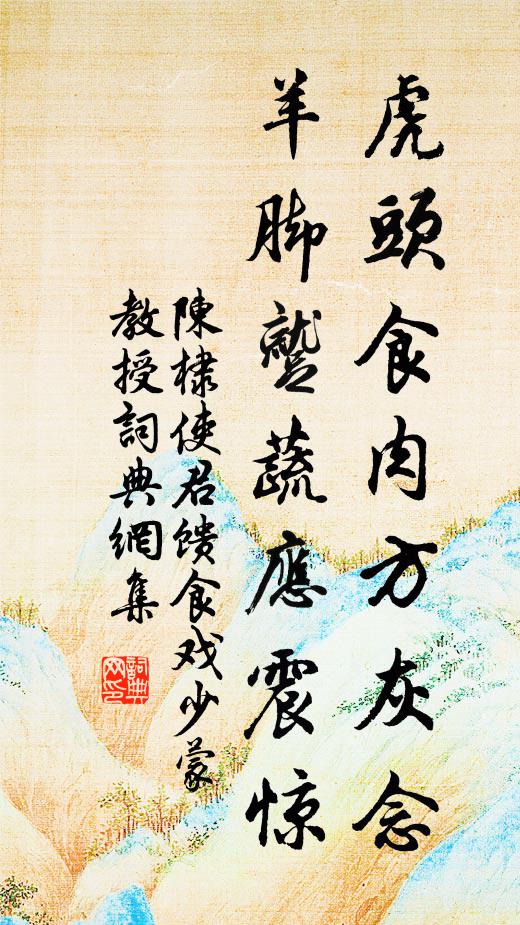 虎頭食肉方灰念
羊脚蹔蔬應震惊
陳棣使君馈食戏少蒙
教授詞典網集
詞典網印